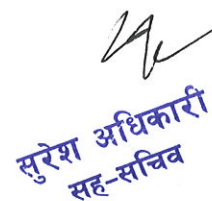 सुरेश अधिकारी
सह-सचिव